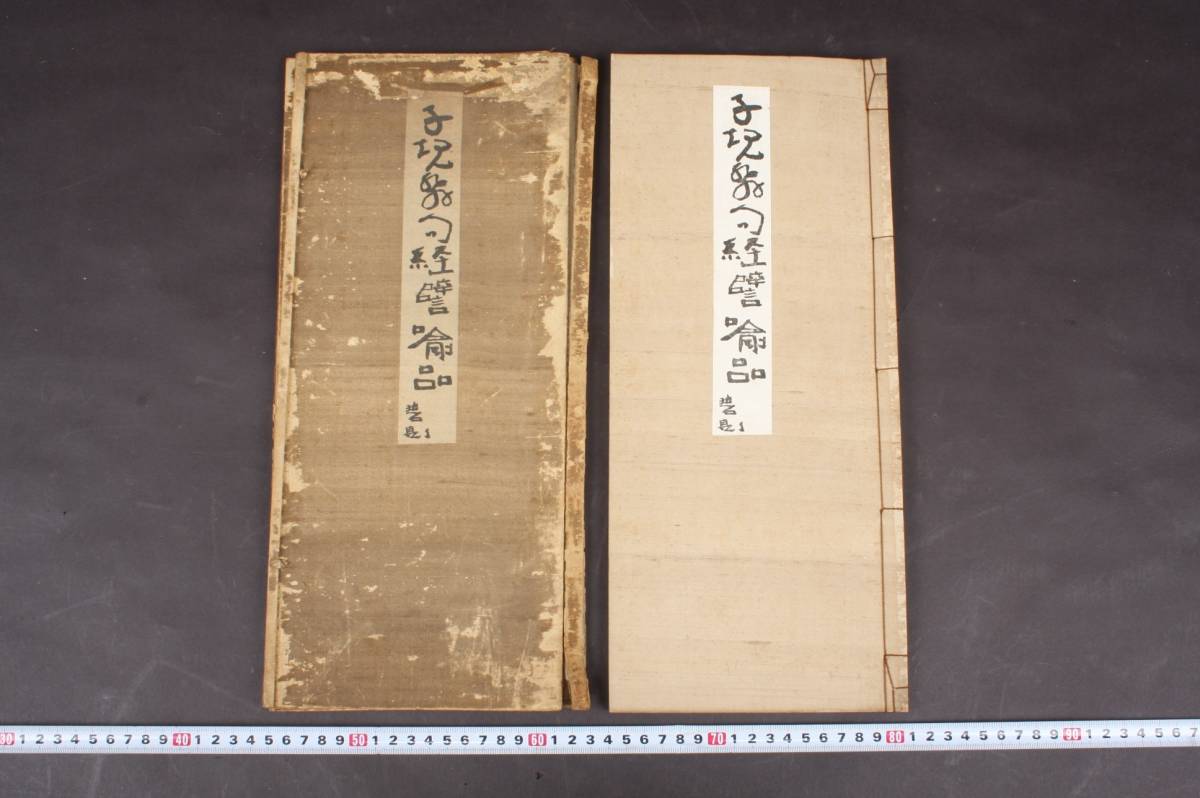 子規発句経譬喩品
碧題
子規発句経譬喩品
碧題
30 1 2 3 4 5 6 7 8 9 40 1 2 3 4 5 6 7 8 9 50 1 2 3 4 5 6 7 8 9 60 1 2 3 4 5 6 7 8 9 70 1 2 3 4 5 6 7 8 9 80 1 2 3 4 5 6 7 8 9 90 1 2 3 4 5 6 7